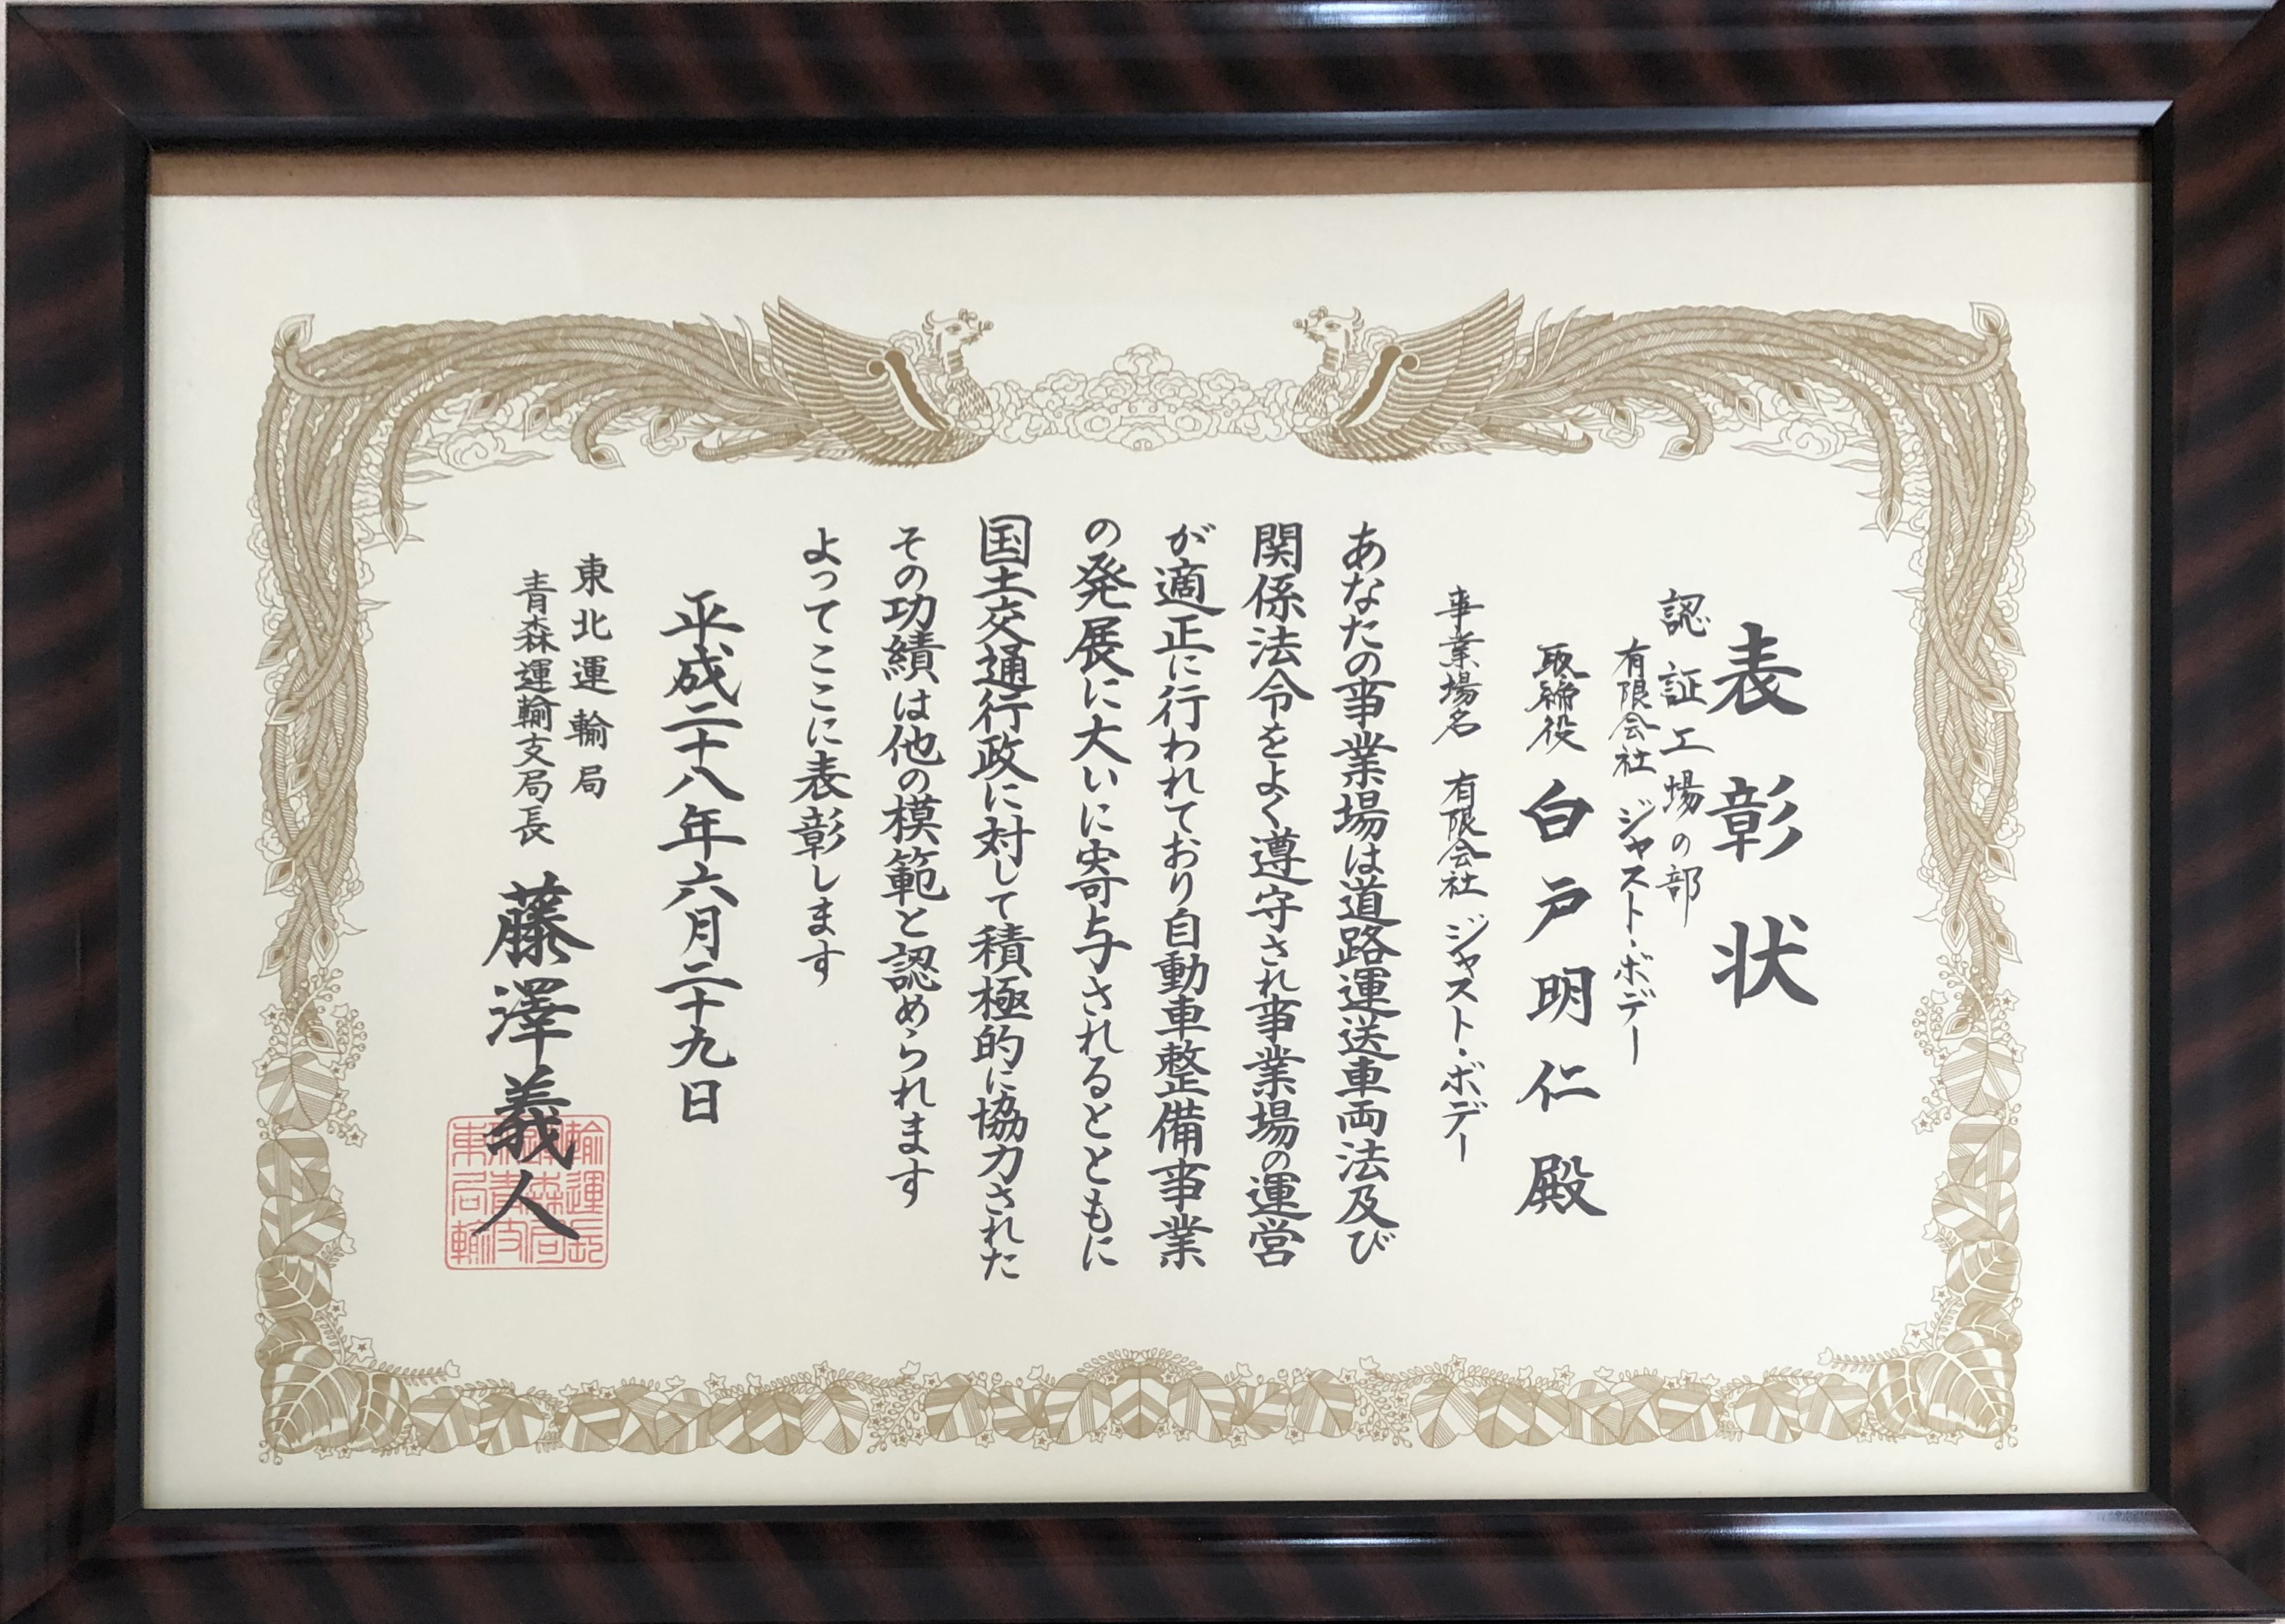 表彰状
認証工場の部
有限会社 ジャスト・ボデー
取締役 白戸明仁殿
事業場名 有限会社 ジャスト・ボデー
あなたの事業場は道路運送車両法及び
関係法令をよく遵守され事業場の運営
が適正に行われており自動車整備事業
の発展に大いに寄与されるとともに
国土交通行政に対して積極的に協力された
その功績は他の模範と認められます
よってここに表彰します
平成二十八年六月二十九日
東北運輸局
青森運輸支局長 藤澤義人